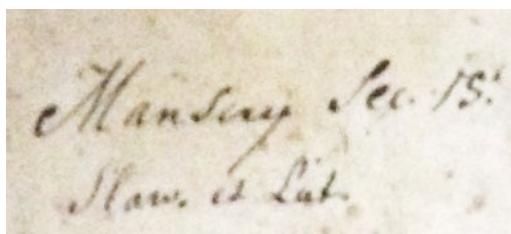 Manscry Sec. 15.
Slaw. et Lat.